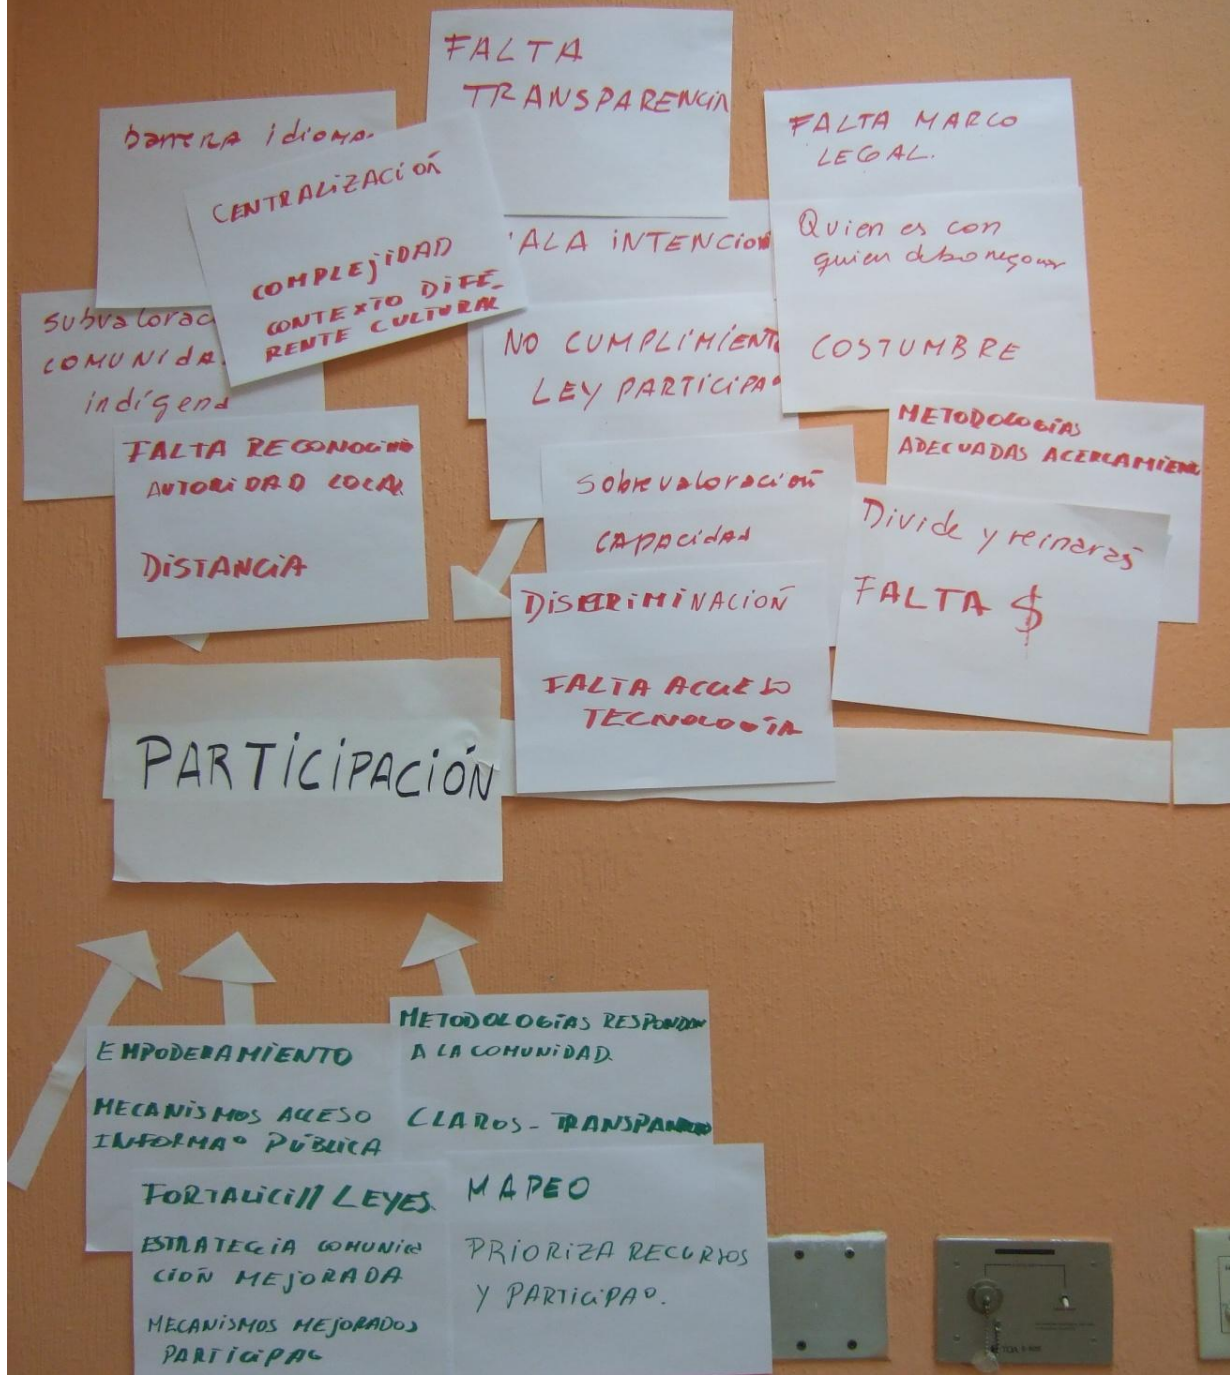 FALTA
TRANSPARENCIA
barrera idioma.
CENTRALIZACIÓN
COMPLEJIDAD
CONTEXTO DIFE-
RENTE CULTURAL
FALTA MARCO
LEGAL.
Quien es con
quien debo negociar
COSTUMBRE
ALA INTENCION
NO CUMPLIMIENTO
LEY PARTICIPAº
subvalorac
COMUNIDA
indígena
FALTA RECONOCIM
AUTORIDAD LOCAL
DISTANCIA
METODOLOGÍAS
ADECUADAS ACERCAMIENTO
Sobrevaloración
CAPACIDAD
Divide y reinarás
FALTA $
DISCRIMINACIÓN
FALTA ACCESO
TECNOLOGÍA
PARTICIPACIÓN
METODOLOGÍAS RESPONDAN
A LA COMUNIDAD.
CLAROS - TRANSPAREN
EMPODERAMIENTO
MECANISMOS ACCESO
INFORMAº PÚBLICA
FORTALICI// LEYES.
ESTRATEGIA COMUNICA
CIÓN MEJORADA
MECANISMOS MEJORADOS
PARTICIPAC
MAPEO
PRIORIZA RECURSOS
Y PARTICIPAº.